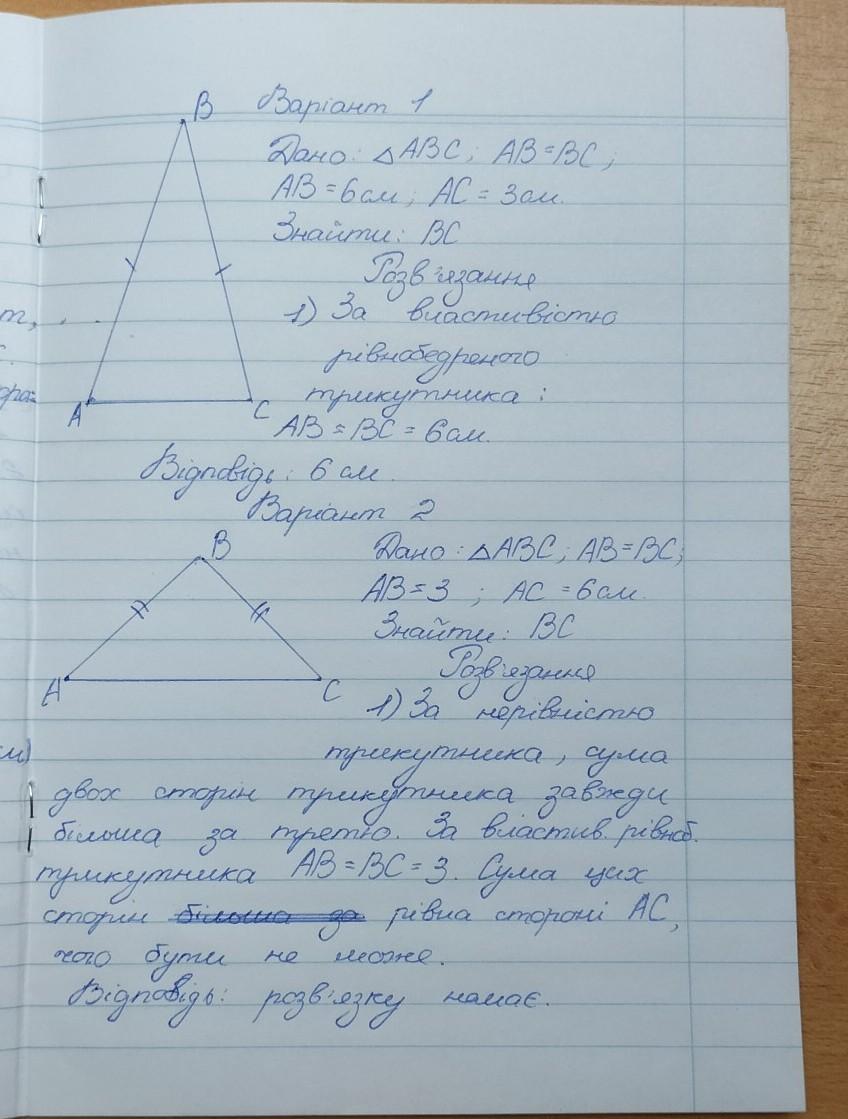 B
Варіант 1
Дано: △ABC; AB=BC;
AB = 6см; AC = 3см.
Знайти: BC
Розв'язання
1) За властивістю
рівнобедреного
A
C
трикутника:
AB = BC = 6см.
Відповідь: 6 см.
Варіант 2
B
Дано: △ABC; AB=BC;
AB=3 ; AC = 6см.
Знайти: BC
Розв'язання
A
C
1) За нерівністю
трикутника, сума
двох сторін трикутника завжди
більша за третю. За властив. рівноб.
трикутника AB = BC = 3. Сума цих
сторін більша за рівна стороні AC,
чого бути не може.
Відповідь: розв'язку немає.
т,
см)